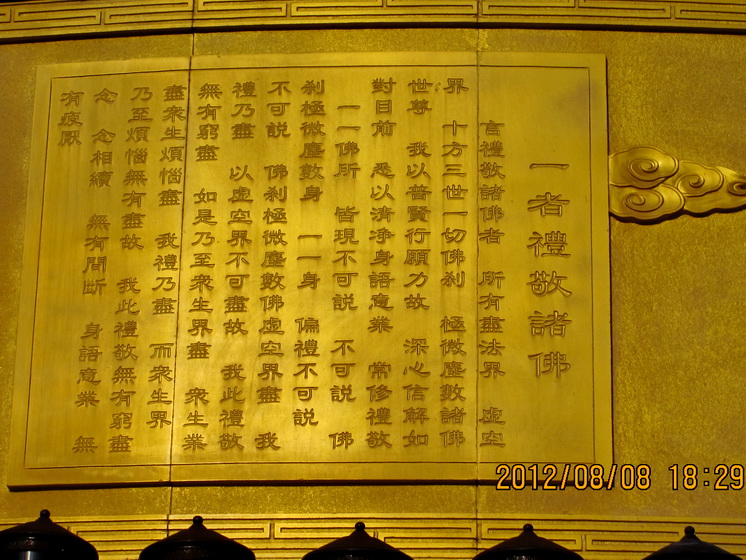 一者禮敬諸佛
言禮敬諸佛者 所有盡法界 虛空
界 十方三世一切佛剎 極微塵數諸佛
世尊 我以普賢行願力故 深心信解如
對目前 悉以清淨身語意業 常修禮敬
一一佛所 皆現不可說 不可說 佛
剎極微塵數身 一一身 偏禮不可說
不可說 佛剎極微塵數佛虛空界盡 我
禮乃盡 以虛空界不可盡故 我此禮敬
無有窮盡 如是乃至眾生界盡 眾生業
盡眾生煩惱盡 我禮乃盡 而眾生界
乃至煩惱無有盡故 我此禮敬無有窮盡
念 念相續 無有間斷 身語意業 無
有疲厭
2012/08/08 18:29